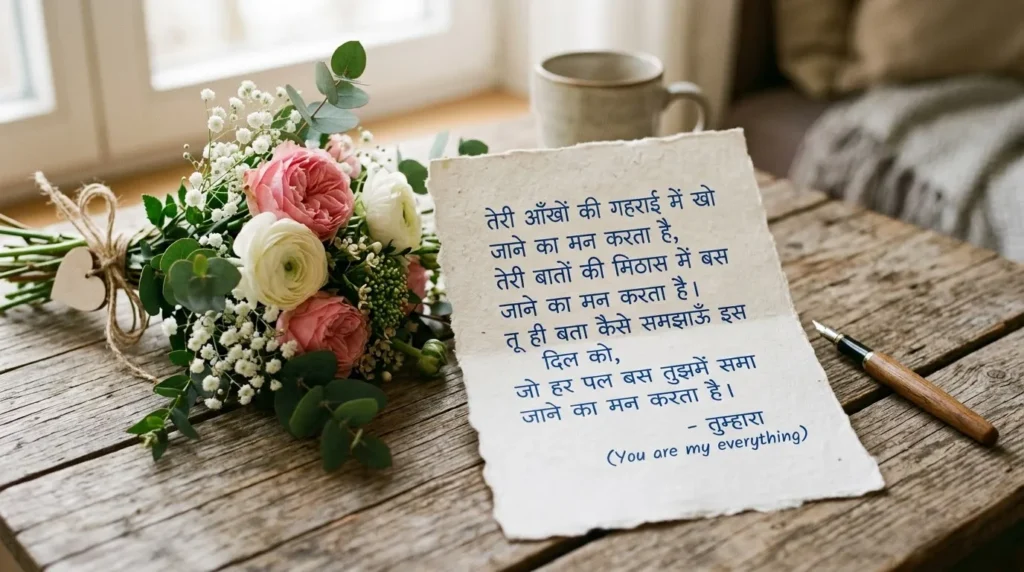 तेरी आँखों की गहराई में खो
जाने का मन करता है,
तेरी बातों की मिठास में बस
जाने का मन करता है।
तू ही बता कैसे समझाऊँ इस
दिल को,
जो हर पल बस तुझमें समा
जाने का मन करता है।
- तुम्हारा
(You are my everything)